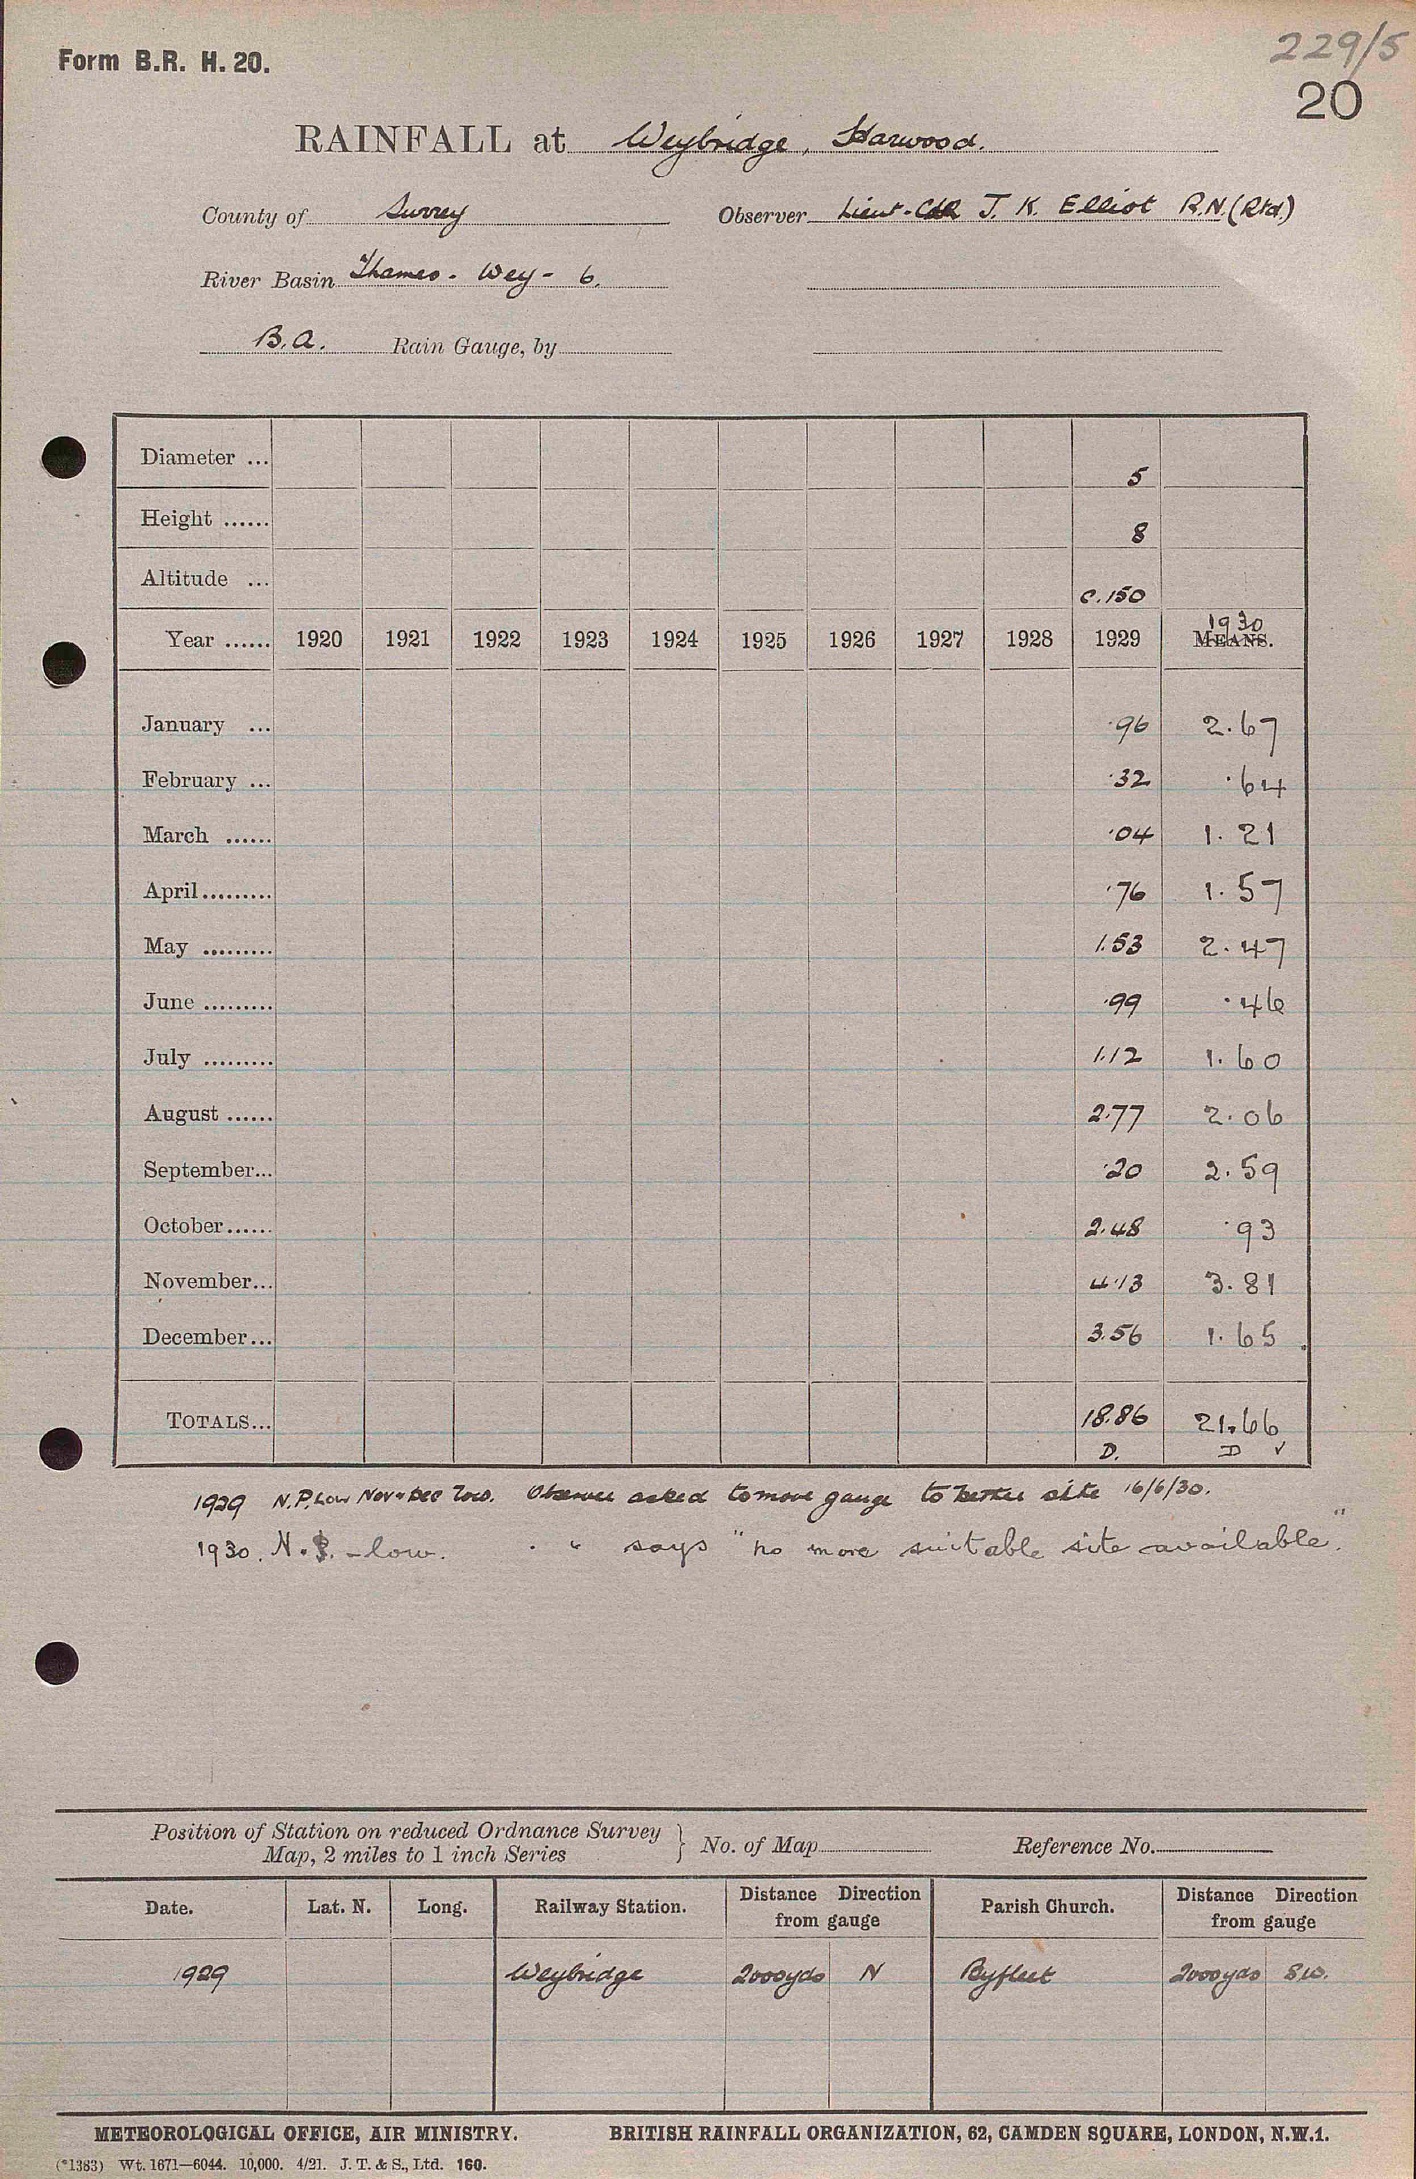 229/5
Form B.R. H. 20.
20
RAINFALL at Weybridge, Harwood.
County of Surrey Observer Lieut-Cdr J. K. Elliot R.N.(Rtd.)
River Basin Thames - Wey - 6.
B.A. Rain Gauge, by
Diameter ... 5
Height ...... 8
Altitude ... c.150
1930
Year ...... 1920 1921 1922 1923 1924 1925 1926 1927 1928 1929 MEANS.
January ... ·96 2.67
February ... ·32 ·64
March ...... ·04 1.21
April......... ·76 1.57
May ......... 1.53 2.47
June ......... ·99 ·46
July ......... 1.12 1.60
August ...... 2.77 2.06
September... ·20 2.59
October...... 2.48 ·93
November... 4.13 3.81
December... 3.56 1.65
TOTALS... 18.86 21.66
D. D ✓
1929 N.P. Low Nov & Dec low. Observer asked to move gauge to better site 16/6/30.
1930. N.P. - low. " " says "no more suitable site available."
Position of Station on reduced Ordnance Survey
Map, 2 miles to 1 inch Series } No. of Map Reference No.
Date. Lat. N. Long. Railway Station. Distance Direction from gauge Parish Church. Distance Direction from gauge
1929 Weybridge 2000yds N Byfleet 2000yds SW.
METEOROLOGICAL OFFICE, AIR MINISTRY. BRITISH RAINFALL ORGANIZATION, 62, CAMDEN SQUARE, LONDON, N.W.1.
(*1383) Wt. 1671—6044. 10,000. 4/21. J. T. & S., Ltd. 160.